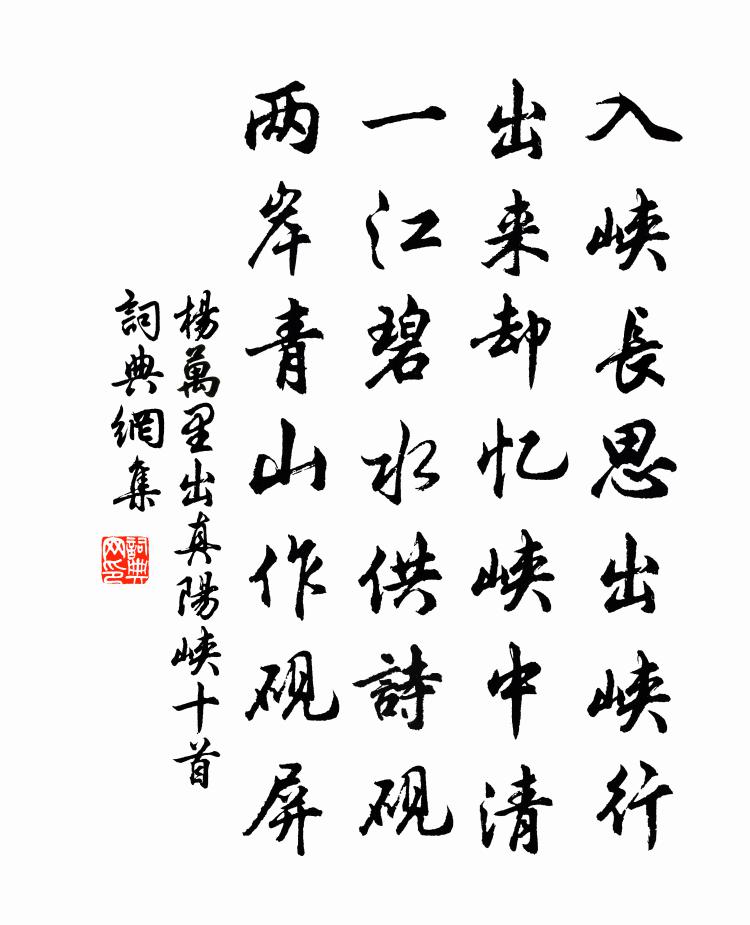 入峡長思出峡行
出来却忆峡中清
一江碧水供詩硯
两岸青山作硯屏
楊萬里出真陽峡十首
詞典網集
詞典
网印